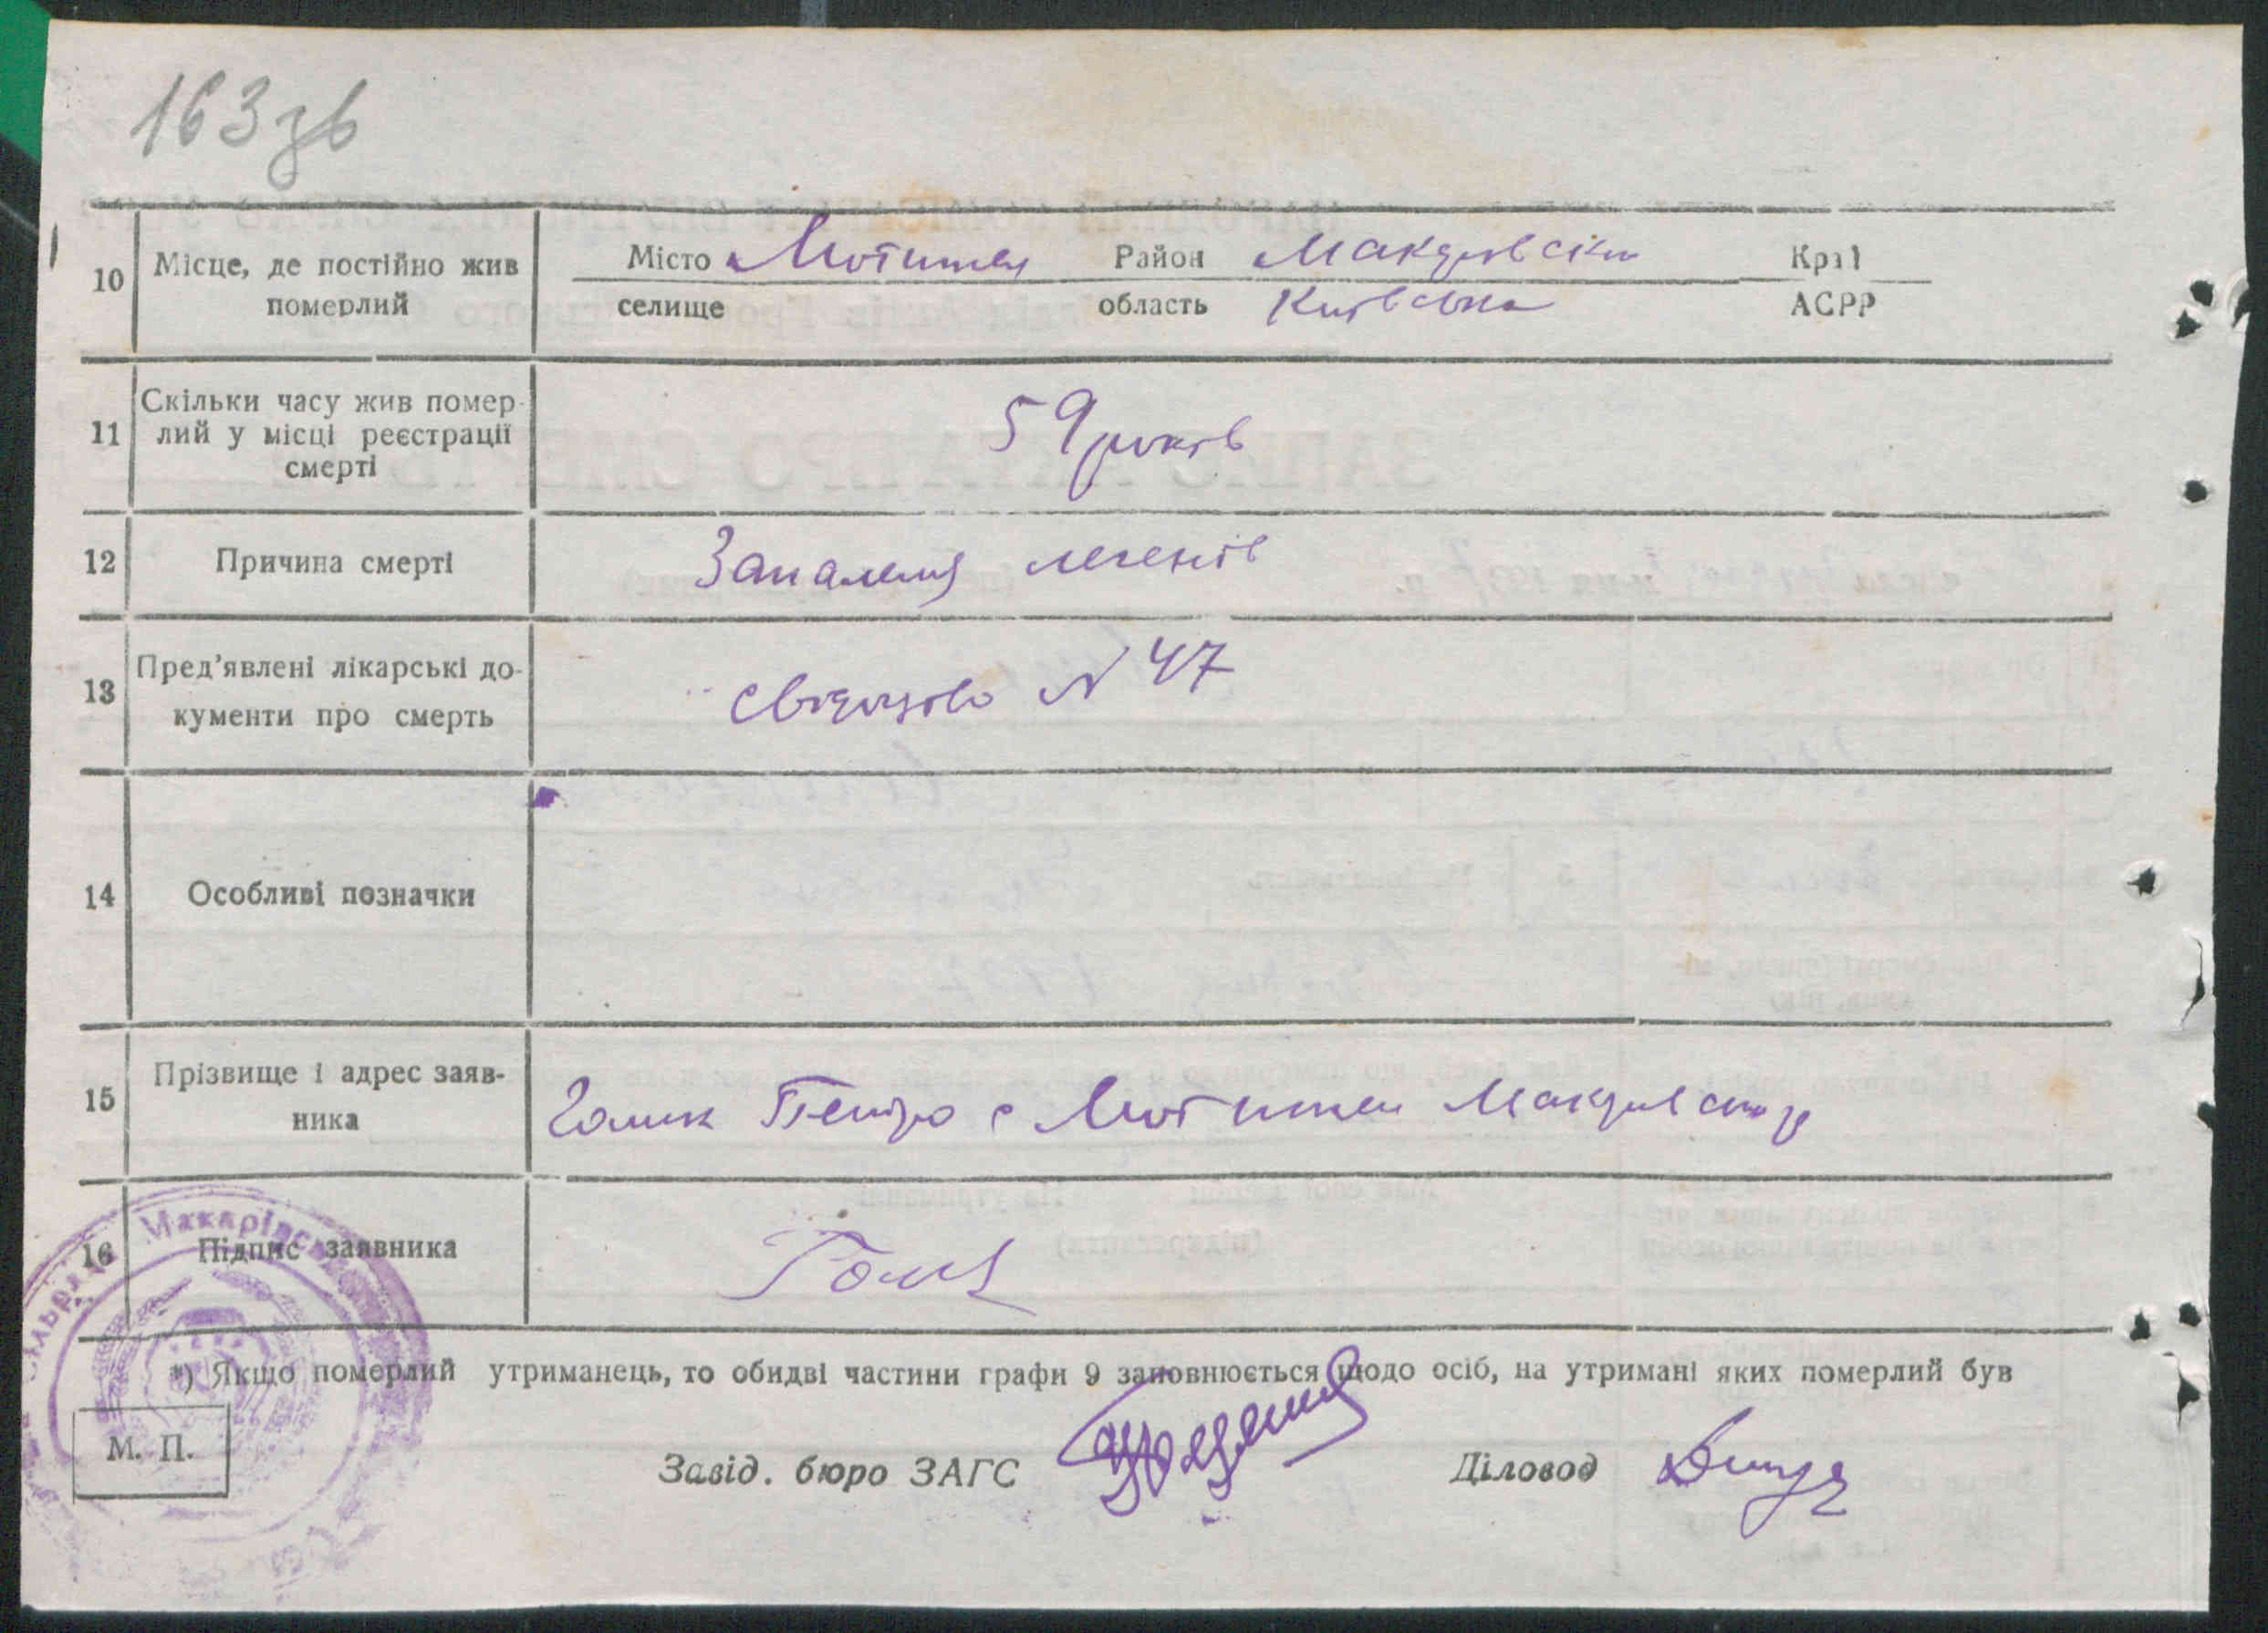 163 зв
10 Місце, де постійно жив померлий
Місто Мотижин Район Макарівський Край
селище область Київська АСРР
11 Скільки часу жив помер-
лий у місці реєстрації
смерті
59 років
12 Причина смерті Запалення легенів
13 Пред'явлені лікарські до-
кументи про смерть
N 47
14 Особливі позначки
15 Прізвище і адрес заяв-
ника
Голик Петро с Мотижин
16 Підпис заявника
*) Якщо померлий утриманець, то обидві частини графи 9 заповнюється щодо осіб, на утримані яких померлий був
М. П.
Завід. бюро ЗАГС Діловод